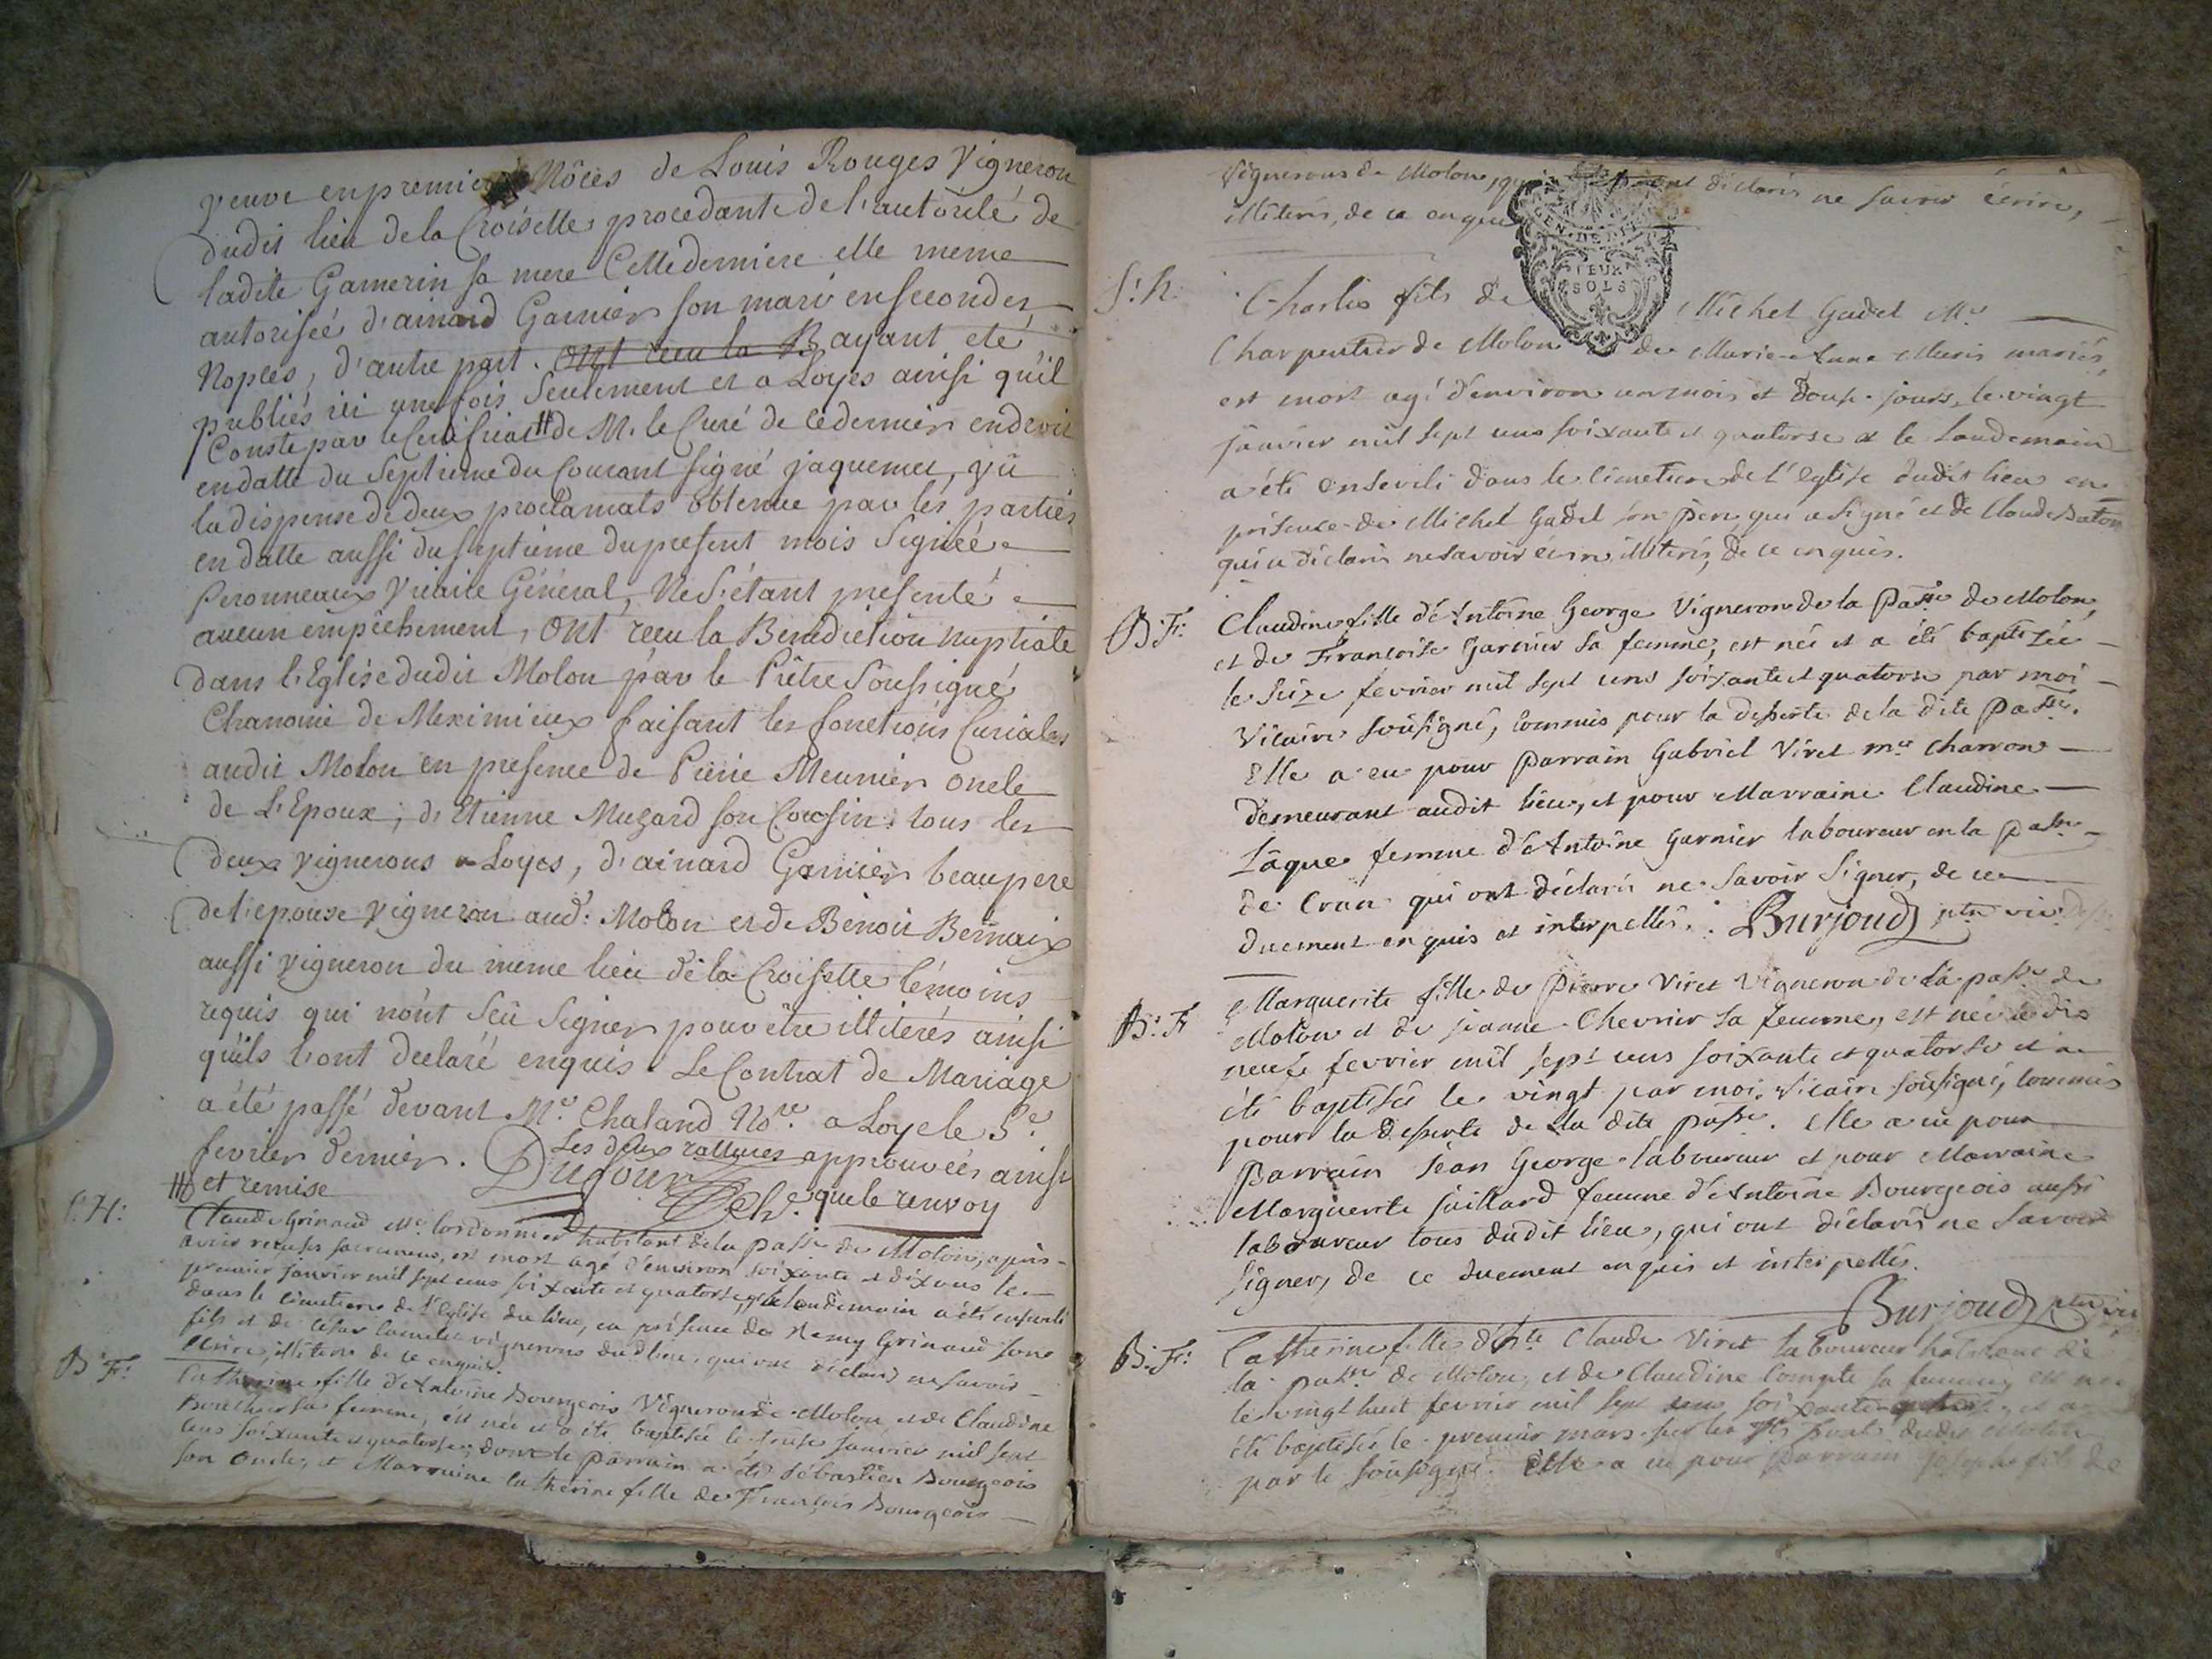 veuve en premieres Nôces de Louis Rouges Vigneron
dudit lieu de la Croisette procedante de l'autorité de
ladite Gamerin sa mere Cette derniere elle meme
autorisée d'ainard Garnier son mari en secondes
Nopces, d'autre part. ont recu la B ayant eté
publiés ici une fois Seulement et a Loyes ainsi qu'il
Conste par le Certificat # de M. le Curé de ce dernier endroit
en datte du Septieme du Courant signé jaquemet, vû
la dispense de deux proclamats obtenue par les parties
en datte aussi du septieme du present mois Signée
Peronneaux Vicaire Général, Ne s'étant presenté
aucun empêchement, Ont recu la Benediction nuptiale
dans l'Eglise dudit Molon par le Prêtre Soussigné
Chanoine de Meximieux faisant les fonctions Curiales
audit Molon en presence de Pierre Meunier oncle
de L'Epoux, d'Etienne Muzard son Cousin tous les
deux vignerons a Loyes, d'ainard Garnier beaupere
de l'epouse vigneron aud: Molon et de Benoit Bernaix
aussi vigneron du meme lieu de la Croisette témoins
requis qui n'ont Seû Signer pour être illiterés ainsi
qu'ils l'ont declaré enquis. Le Contrat de Mariage
a été passé devant Me Chaland Nore a Loye le 5e
fevrier dernier. Les deux rattures approuvées ainsi
# et remise Dufour Ch. que le renvoy
S: H:
Claude Grinand Me Cordonnier habitant de la passe de Molon, apres
avoir recu ses sacremens, est mort agé d'environ soixante et dix ans le
premier janvier mil sept cens soixante et quatorse, et le lendemain a été enseveli
dans le cimetiere de l'eglise du lieu, en présence de Remy Grinand son
fils et de vignerons dud lieu, qui ont déclaré ne savoir
écrire, illiterés de ce enquis
B: F:
Catherine fille d'Antoine Bourgeois Vigneron de Molon, et de Claudine
sa femme, est née et a été baptisée le janvier mil sept
cens soixante et quatorse, dont le parrain a été Sébastien Bourgeois
son Oncle, et Marraine Catherine fille de François Bourgeois
Vignerons de Molon, qui déclaré ne savoir écrire,
illiterés, de ce enquis
GEN DE
DEUX
SOLS
S: h:
Charles fils de Michel Gadel Me
Charpentier de Molon de Marie Anne Muris mariés,
est mort agé d'environ un mois et douse jours, le vingt
janvier mil sept cens soixante et quatorse et le Landemain
a été enseveli dans le cimetiere de l'eglise dudit lieu en
présence de Michel Gadel son pere qui a signé et de Claude
qui a déclaré ne savoir écrire illiterés, de ce enquis.
B: F:
Claudine fille d'Antoine George Vigneron de la Passe de Molon,
et de Francoise Garnier sa femme, est née et a été baptisée
le seize fevrier mil sept cens soixante et quatorse par moi
Vicaire sousigné, commis pour la desserte de la dite Passe.
Elle a eu pour parrain Gabriel Viret me charron
demeurant audit lieu, et pour Marraine Claudine
Lâque femme d'Antoine Garnier laboureur en la passe
de Cran qui ont déclaré ne Savoir Signer, de ce
duement enquis et interpellés. Burjoud ptre vic
B: F
Marguerite fille de Pierre Viret Vigneron de la passe de
Molon et de jeanne Chevrier sa femme, est née le dix
neuf fevrier mil sept cens soixante et quatorse et a
été baptisée le vingt par moi Vicaire sousigné, commis
pour la desserte de la dite passe. elle a eu pour
Parrain jean George laboureur et pour Marraine
Marguerite juillard femme d'Antoine Bourgeois aussi
laboureur tous dudit lieu, qui ont déclaré ne Savoir
Signer, de ce duement enquis et interpellés.
Burjoud ptre vic
B: F:
Catherine fille d'hte Claude Viret laboureur habitant de
la passe de Molon, et de Claudine Compte sa femme, est née
le vingt huit fevrier mil sept cens soixante et a
été baptisée le premier mars sur les dudit Molon
par le sousigné. Elle a eu pour parrain joseph fils de